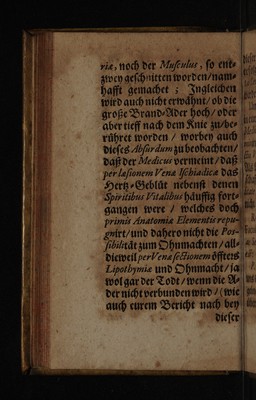 riæ, noch der Musculus, so ent-
zwey geschnitten worden/nam-
hafft gemachet; Ingleichen
wird auch nicht erwähnt/ ob die
große Brand-Ader hoch/ oder
aber tieff nach dem Knie zu/be-
rühret worden / worbey auch
dieses Absurdum zu beobachten/
daß der Medicus vermeint/ daß
per læsionem Venæ Ischiadicæ das
Hertz-Geblüt nebenst denen
Spiritibus Vitalibus häuffig fort-
gangen were / welches doch
primis Anatomiæ Elementis repu-
gnirt/ und dahero nicht die Pos-
sibilität zum Ohnmachten/ all-
dieweil per Venæ sectionem öffters
Lipothymiæ und Ohnmacht/ ja
wol gar der Todt / wenn die A-
der nicht verbunden wird / (wie
auch eurem Bericht nach bey
dieser